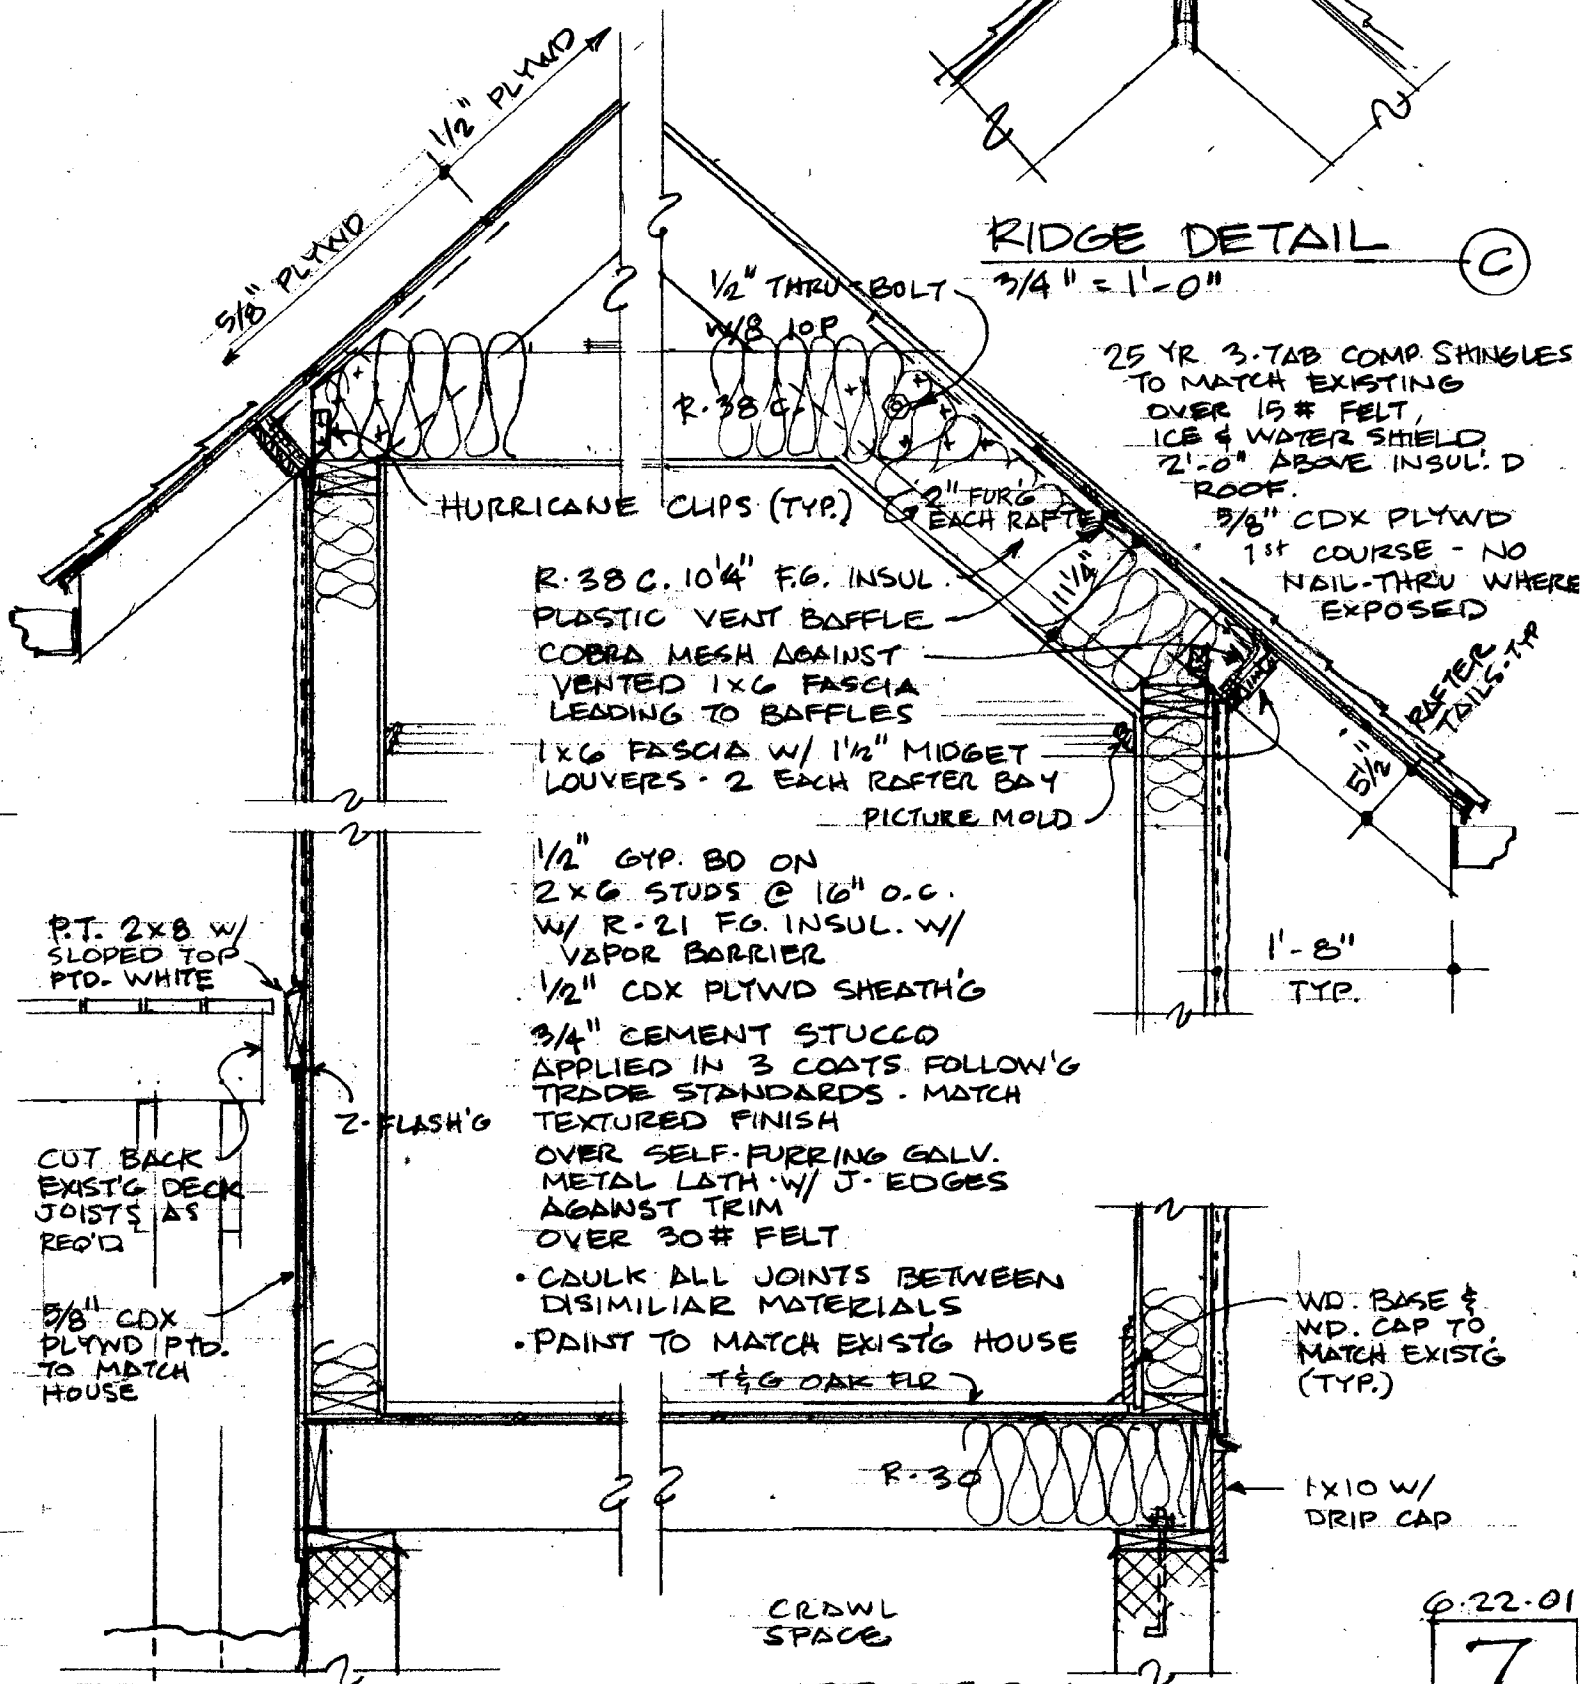 1 1/2" PLYWD
5/8" PLYWD
RIDGE DETAIL
C
3/4" = 1'-0"
1/2" THRU-BOLT
W/8 10P
R-38 C
HURRICANE CLIPS (TYP.)
2" FUR'G
EACH RAFTER
25 YR 3-TAB COMP. SHINGLES
TO MATCH EXISTING
OVER 15# FELT,
ICE & WATER SHIELD
2'-0" ABOVE INSUL'D
ROOF.
5/8" CDX PLYWD
1st COURSE - NO
NAIL-THRU WHERE
EXPOSED
R-38 C. 10 1/4" F.G. INSUL.
PLASTIC VENT BAFFLE
COBRA MESH AGAINST
VENTED 1X6 FASCIA
LEADING TO BAFFLES
1X6 FASCIA W/ 1 1/2" MIDGET
LOUVERS - 2 EACH RAFTER BAY
PICTURE MOLD
11 1/4"
RAFTER
TAILS-TYP
5 1/2"
1'-8"
TYP.
1/2" GYP. BD ON
2X6 STUDS @ 16" O.C.
W/ R-21 F.G. INSUL. W/
VAPOR BARRIER
1/2" CDX PLYWD SHEATH'G
3/4" CEMENT STUCCO
APPLIED IN 3 COATS FOLLOW'G
TRADE STANDARDS. MATCH
TEXTURED FINISH
OVER SELF-FURRING GALV.
METAL LATH W/ J-EDGES
AGAINST TRIM
OVER 30# FELT
• CAULK ALL JOINTS BETWEEN
DISIMILIAR MATERIALS
• PAINT TO MATCH EXIST'G HOUSE
T&G OAK FLR
P.T. 2X8 W/
SLOPED TOP
PTD. WHITE
Z-FLASH'G
CUT BACK
EXIST'G DECK
JOISTS AS
REQ'D
5/8" CDX
PLYWD PTD.
TO MATCH
HOUSE
WD. BASE &
WD. CAP TO
MATCH EXIST'G
(TYP.)
R-30
1X10 W/
DRIP CAP
CRAWL
SPACE
6.22.01
7